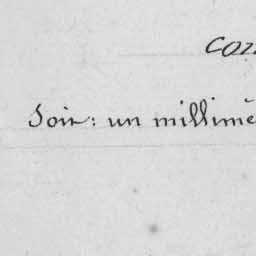 Con
Soit: un millimè